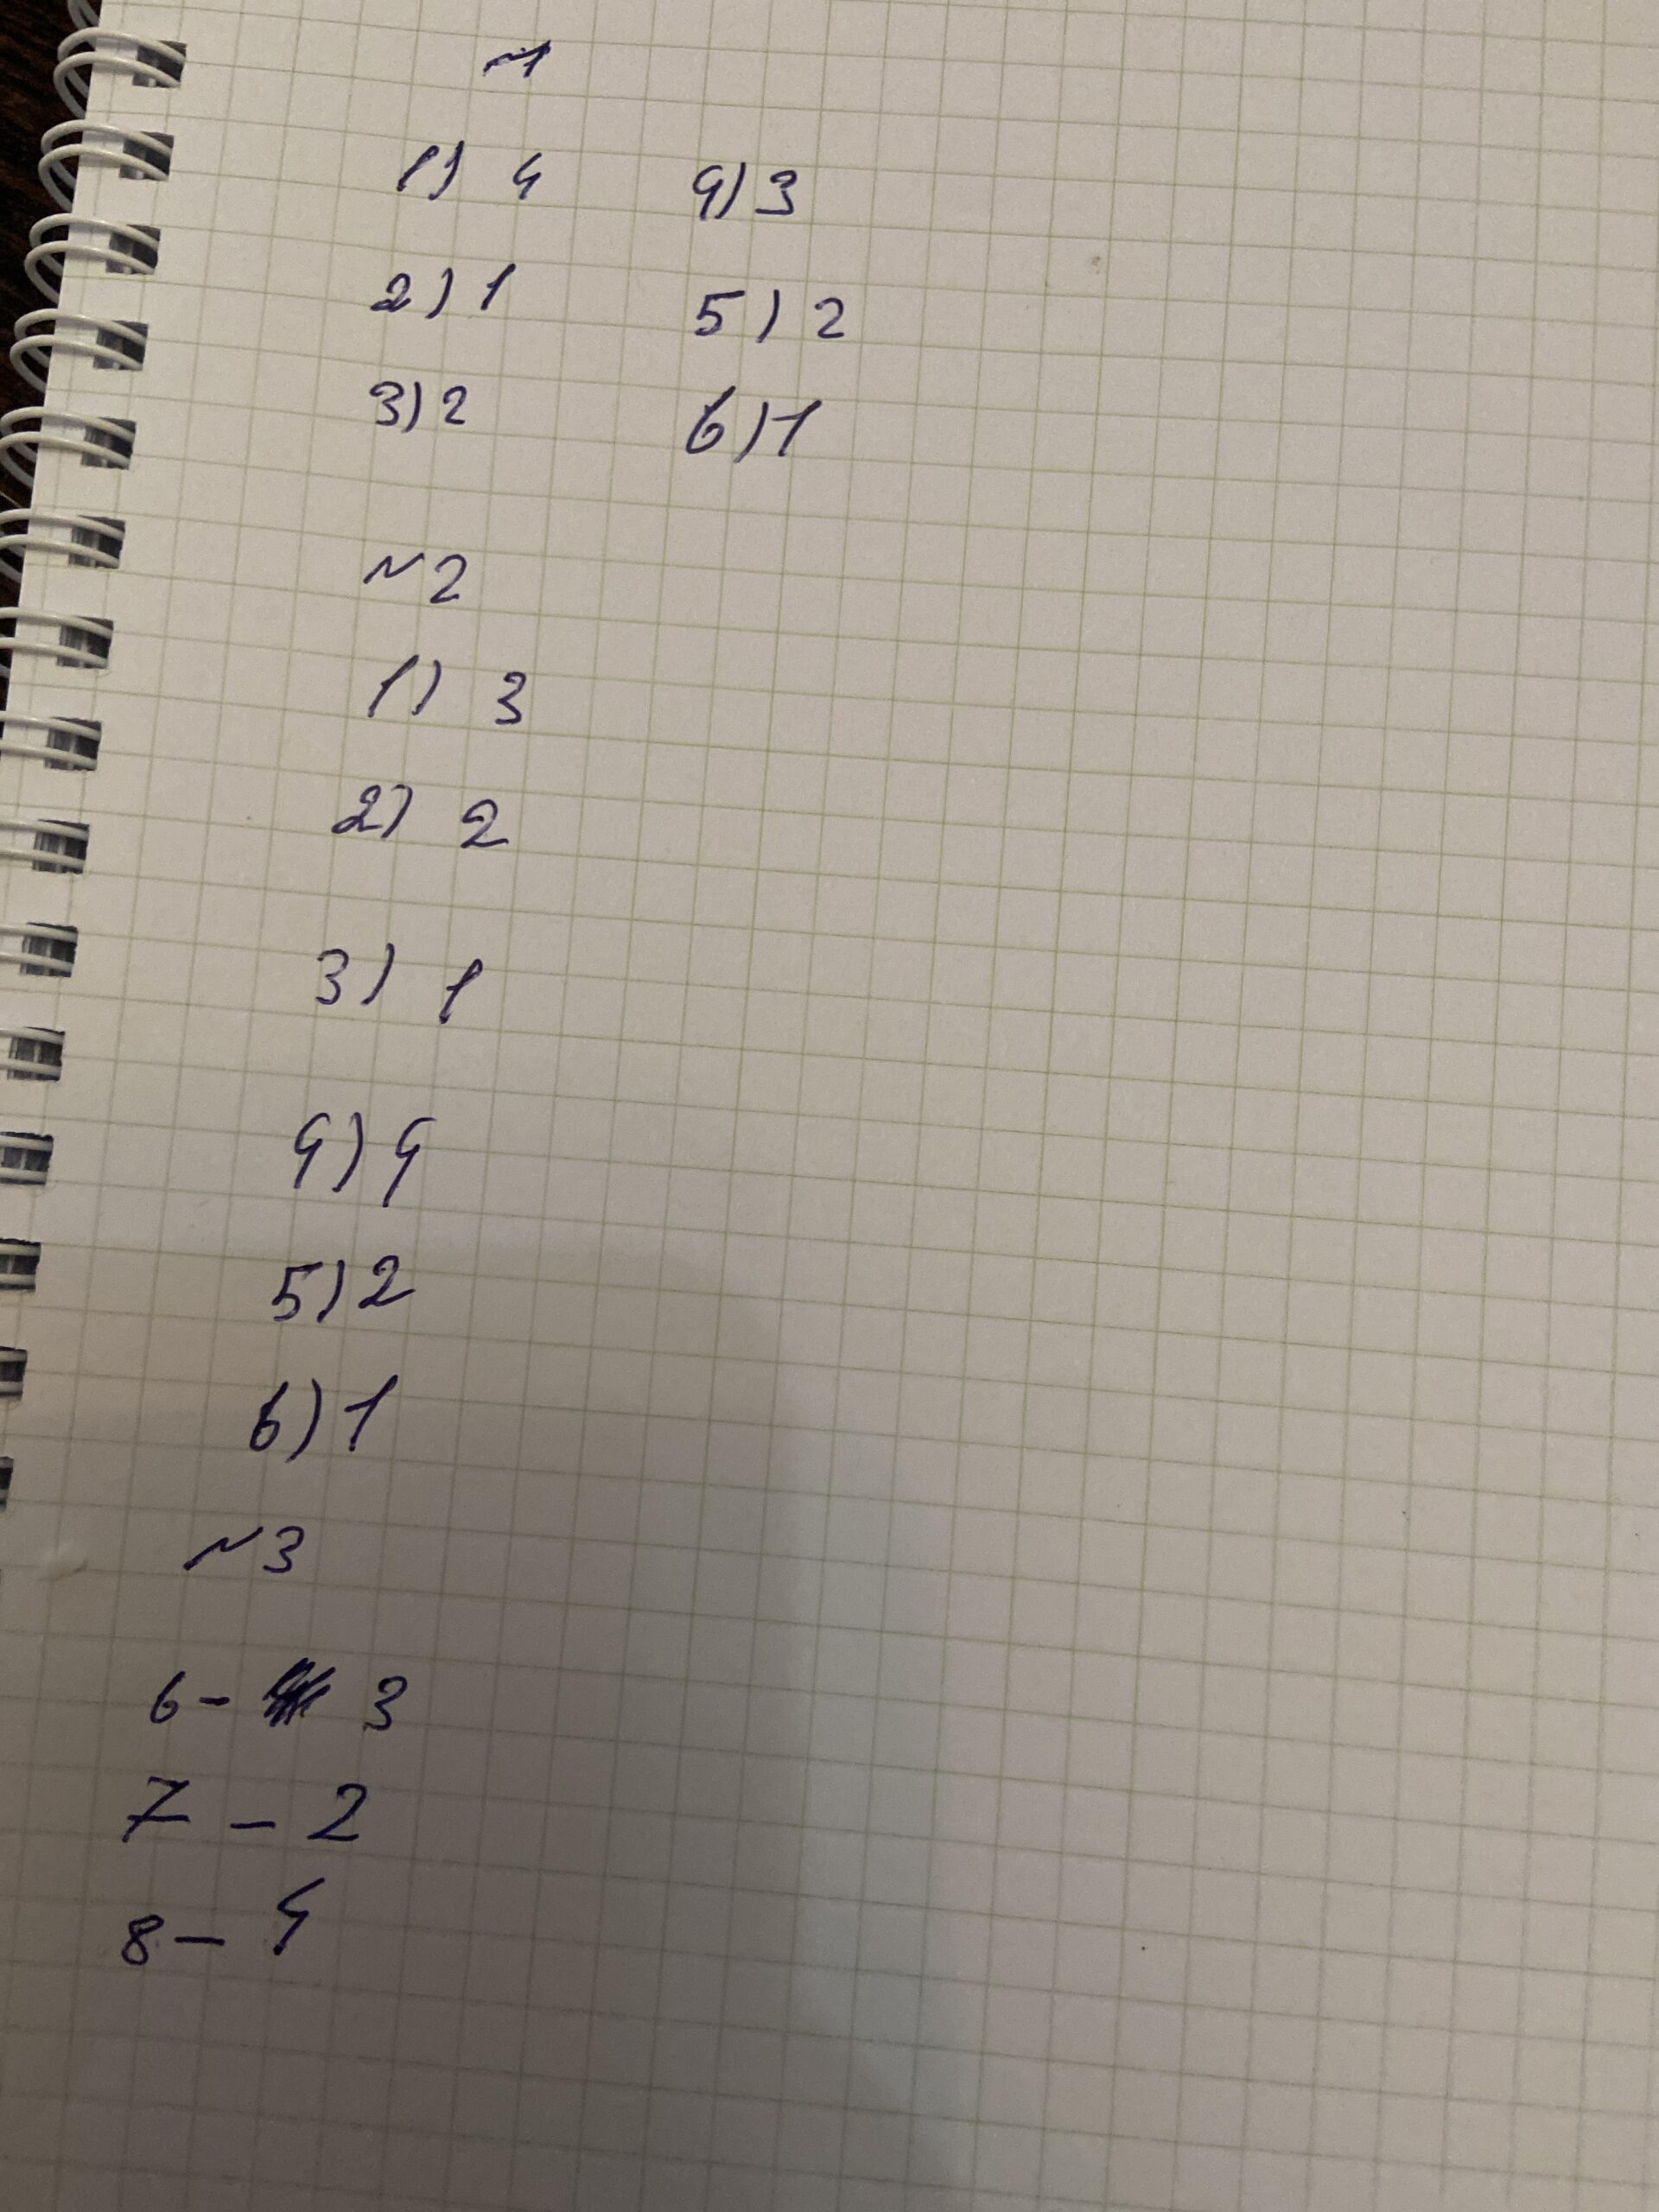 №1
1) 4 4) 3
2) 1 5) 2
3) 2 6) 1
№2
1) 3
2) 2
3) 1
4) 4
5) 2
6) 1
№3
6 - 3
7 - 2
8 - 4